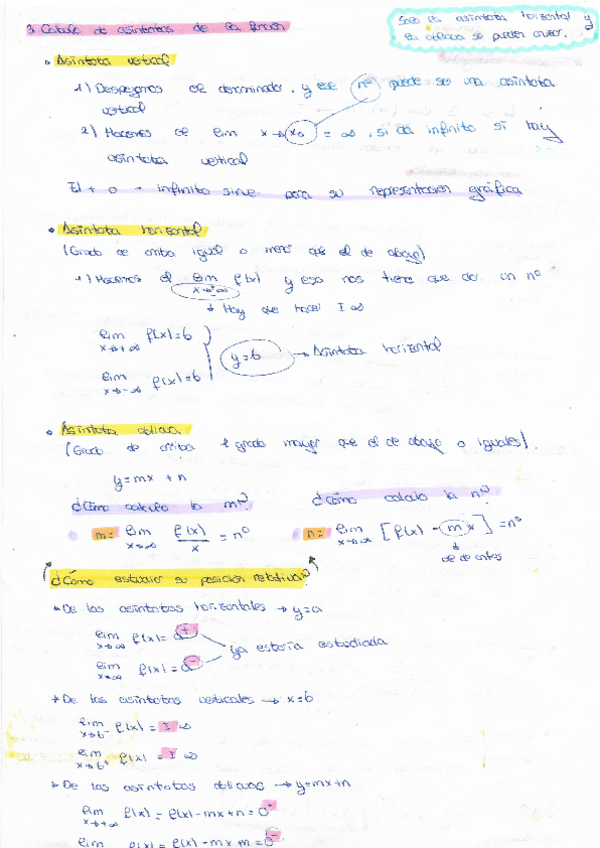 3 Calculo de asintotas de la función
Solo la asintota horizontal y
la oblicua se pueden cruzar.
• Asintota vertical
1) Despejamos el denominador, y ese nº puede ser una asintota
vertical
2) Hacemos el lim x→x₀ = ∞, si da infinito si hay
asintota vertical
El + o - infinito sirve para su representación gráfica
• Asintota horizontal
(Grado de arriba igual o menor que el de abajo)
1) Hacemos el lim x→±∞ f(x) y eso nos tiene que dar un nº
↓ Hay que hacer ± ∞
lim x→+∞ f(x)=b
y=b → Asintota horizontal
lim x→-∞ f(x)=b
• Asintota oblicua
(Grado de arriba 1 grado mayor que el de abajo o iguales).
y=mx+n
¿Cómo calculo la m? ¿Cómo calculo la n?
m= lim x→∞ f(x)/x = nº n= lim x→∞ [f(x) - mx] = nº
↓
de antes
¿Cómo estudiar su posición relativa?
* De las asintotas horizontales → y=a
lim x→∞ f(x)= a⁺
ya estaría estudiada
lim x→∞ f(x)= a⁻
* De las asintotas verticales → x=b
lim x→b⁻ f(x) = ± ∞
lim x→b⁺ f(x) = ± ∞
* De las asintotas oblicuas → y=mx+n
lim x→+∞ f(x) = f(x)-mx+n = 0
lim f(x) = f(x)-mx+n = 0